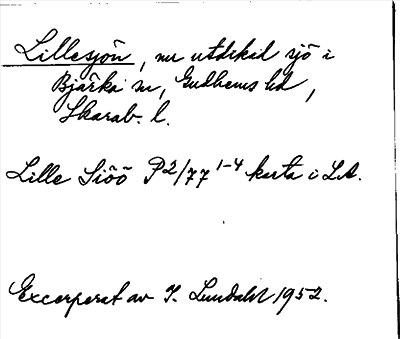 Lillesjön, nu utdikad sjö i
Bjärka sn, Gudhems hd,
Skarab. l.
Lille Siöö P2/77 1-4 karta i LA.
Excerperat av I. Lundahl 1952.